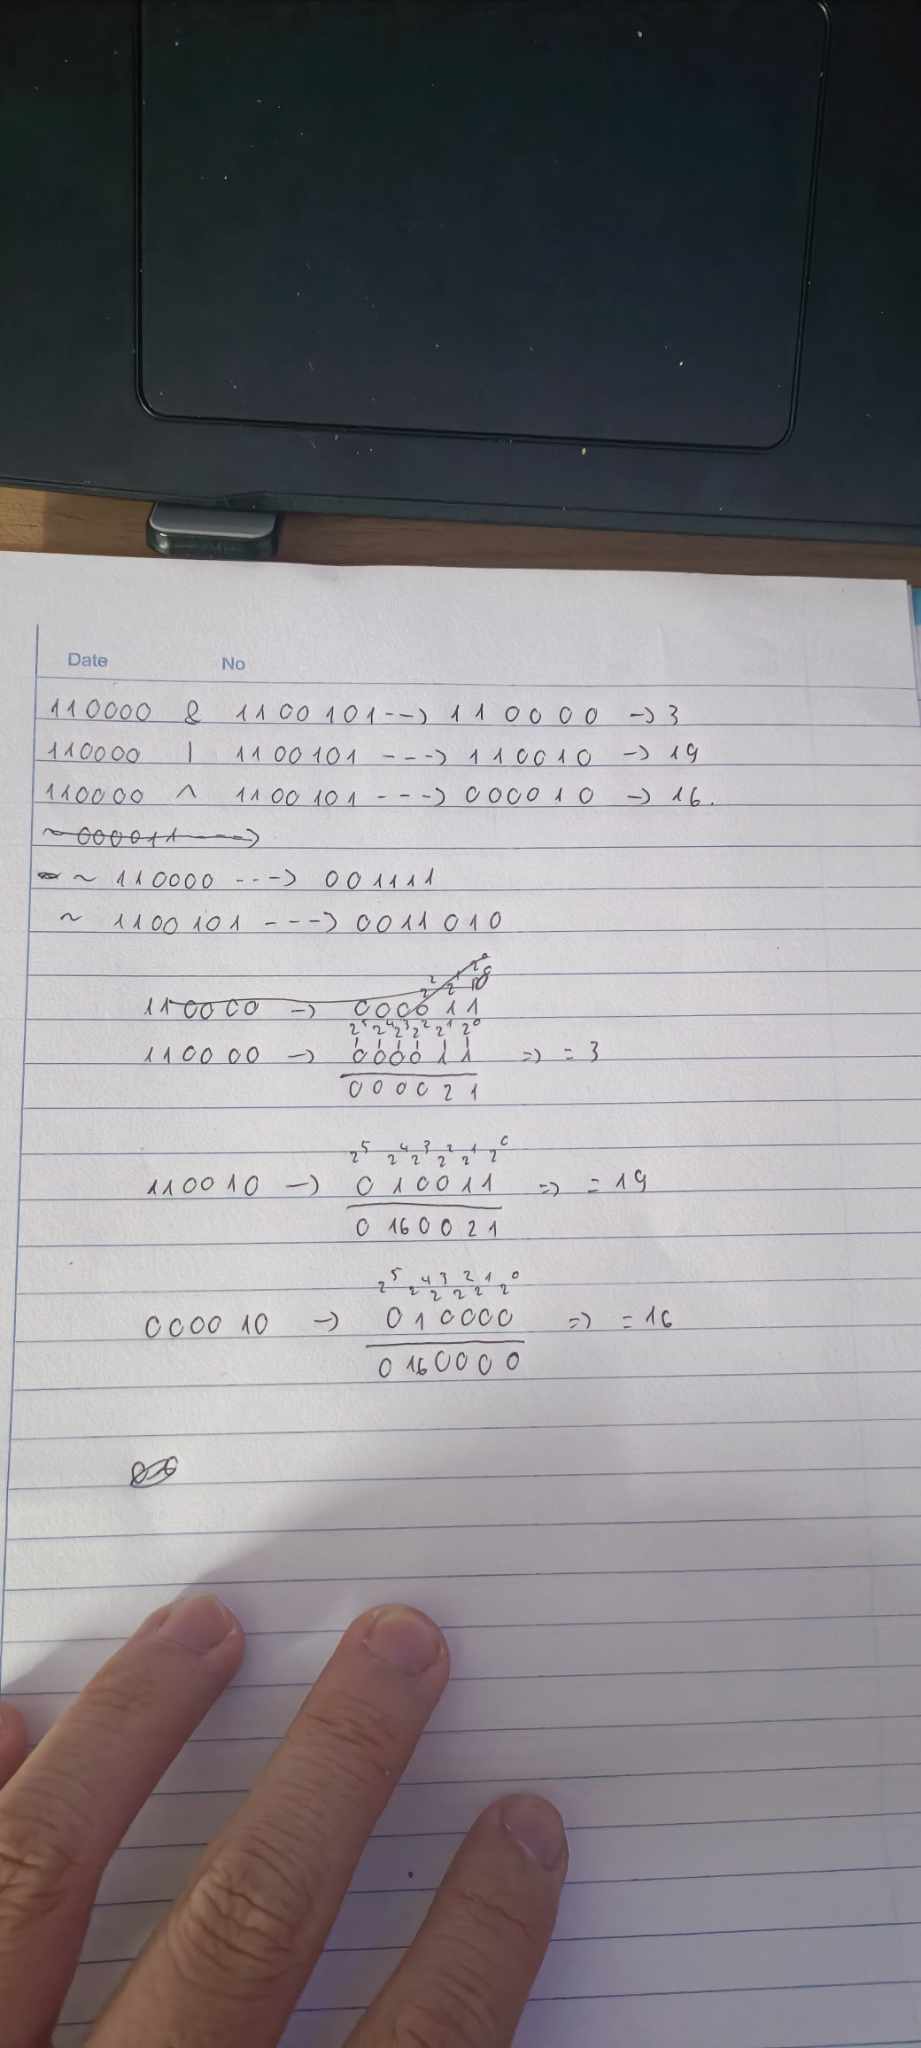 Date No
110000 & 1100101 --> 110000 -> 3
110000 | 1100101 ---> 110010 -> 19
110000 ^ 1100101 ---> 000010 -> 16.
~ 000011 --->
~ 110000 ---> 001111
~ 1100101 ---> 0011010
2² 2¹ 2⁰
110000 -> 000011
2⁵ 2⁴ 2³ 2² 2¹ 2⁰
110000 -> 000011 => = 3
000021
2⁵ 2⁴ 2³ 2² 2¹ 2⁰
110010 -> 010011 => = 19
0160021
2⁵ 2⁴ 2³ 2² 2¹ 2⁰
000010 -> 010000 => = 16
0160000